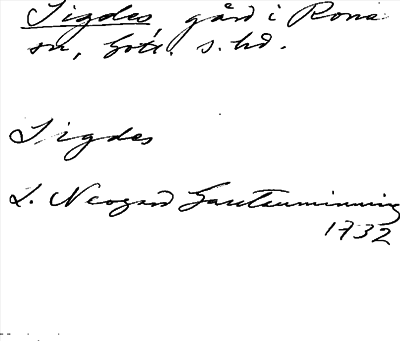 Sigdes, gård i Rone
sn, Gotl. s. hd.
Sigdes
L. Neogard Gautauminning
1732